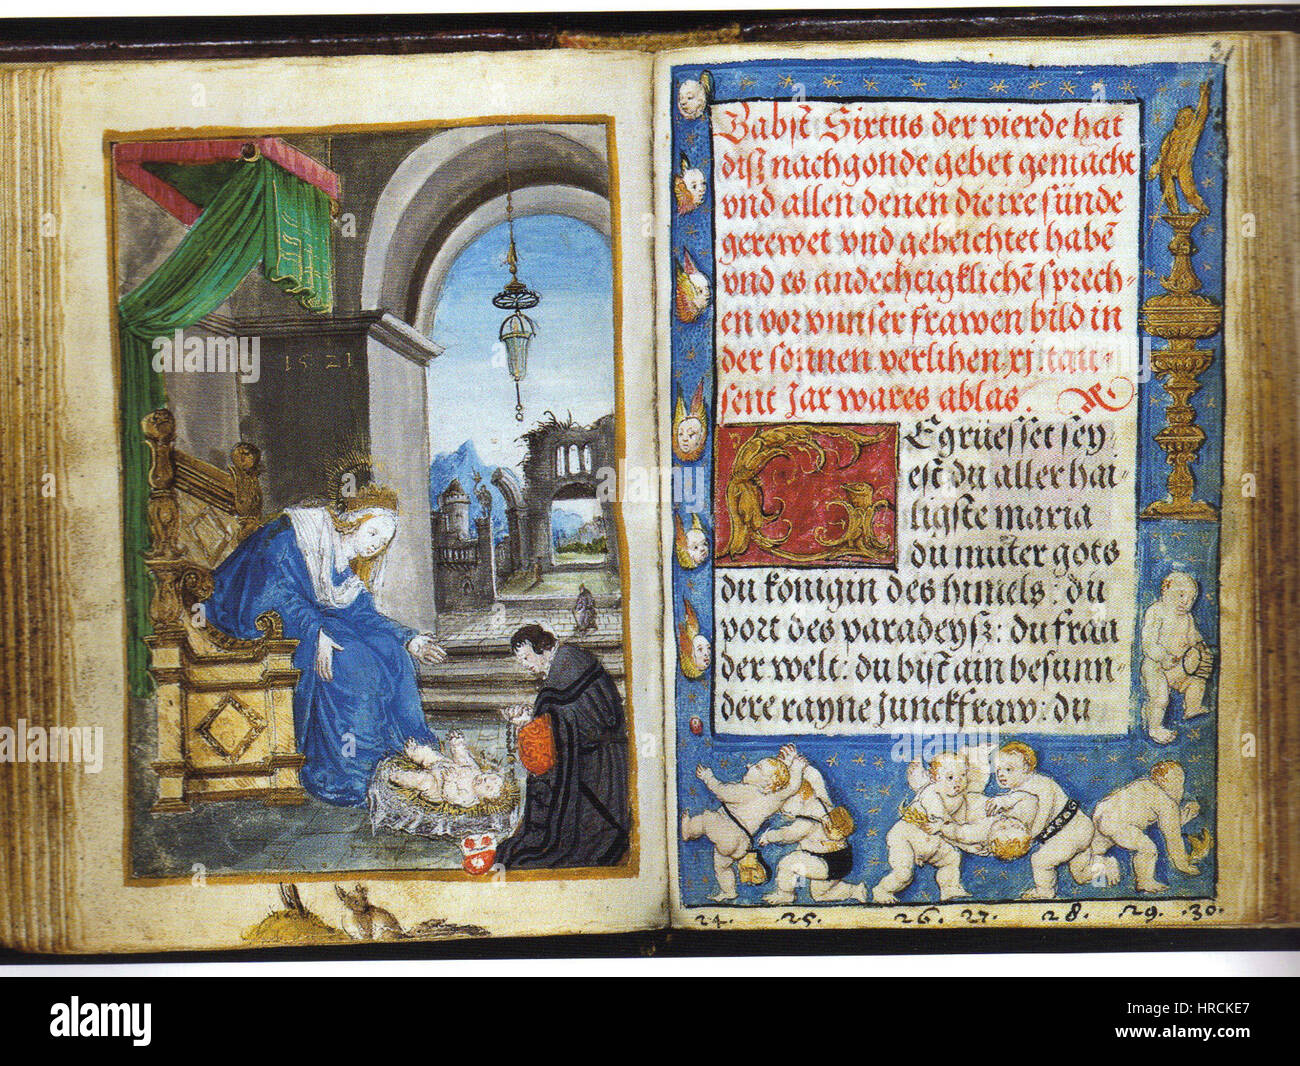 1521
31
Babst Sixtus der vierde hat
disz nachgonde gebet gemacht
vnd allen denen die ire sünde
gerewet vnd gebeichtet habē
vnd es andechtigklichē sprech-
en vor vnnser frawen bild in
der sonnen verlihen. xj. tau-
sent Jar wares ablas.
Egrüesset sey
est du aller hai-
ligste maria
du muter gots
du konigin des himels: du
port des paradeysz: du frau
der welt: du bist ain besunn-
dere rayne Junckfraw: du
24. 25. 26. 27. 28. 29. 30.
a
alamy stock photo
HRCKE7
www.alamy.com